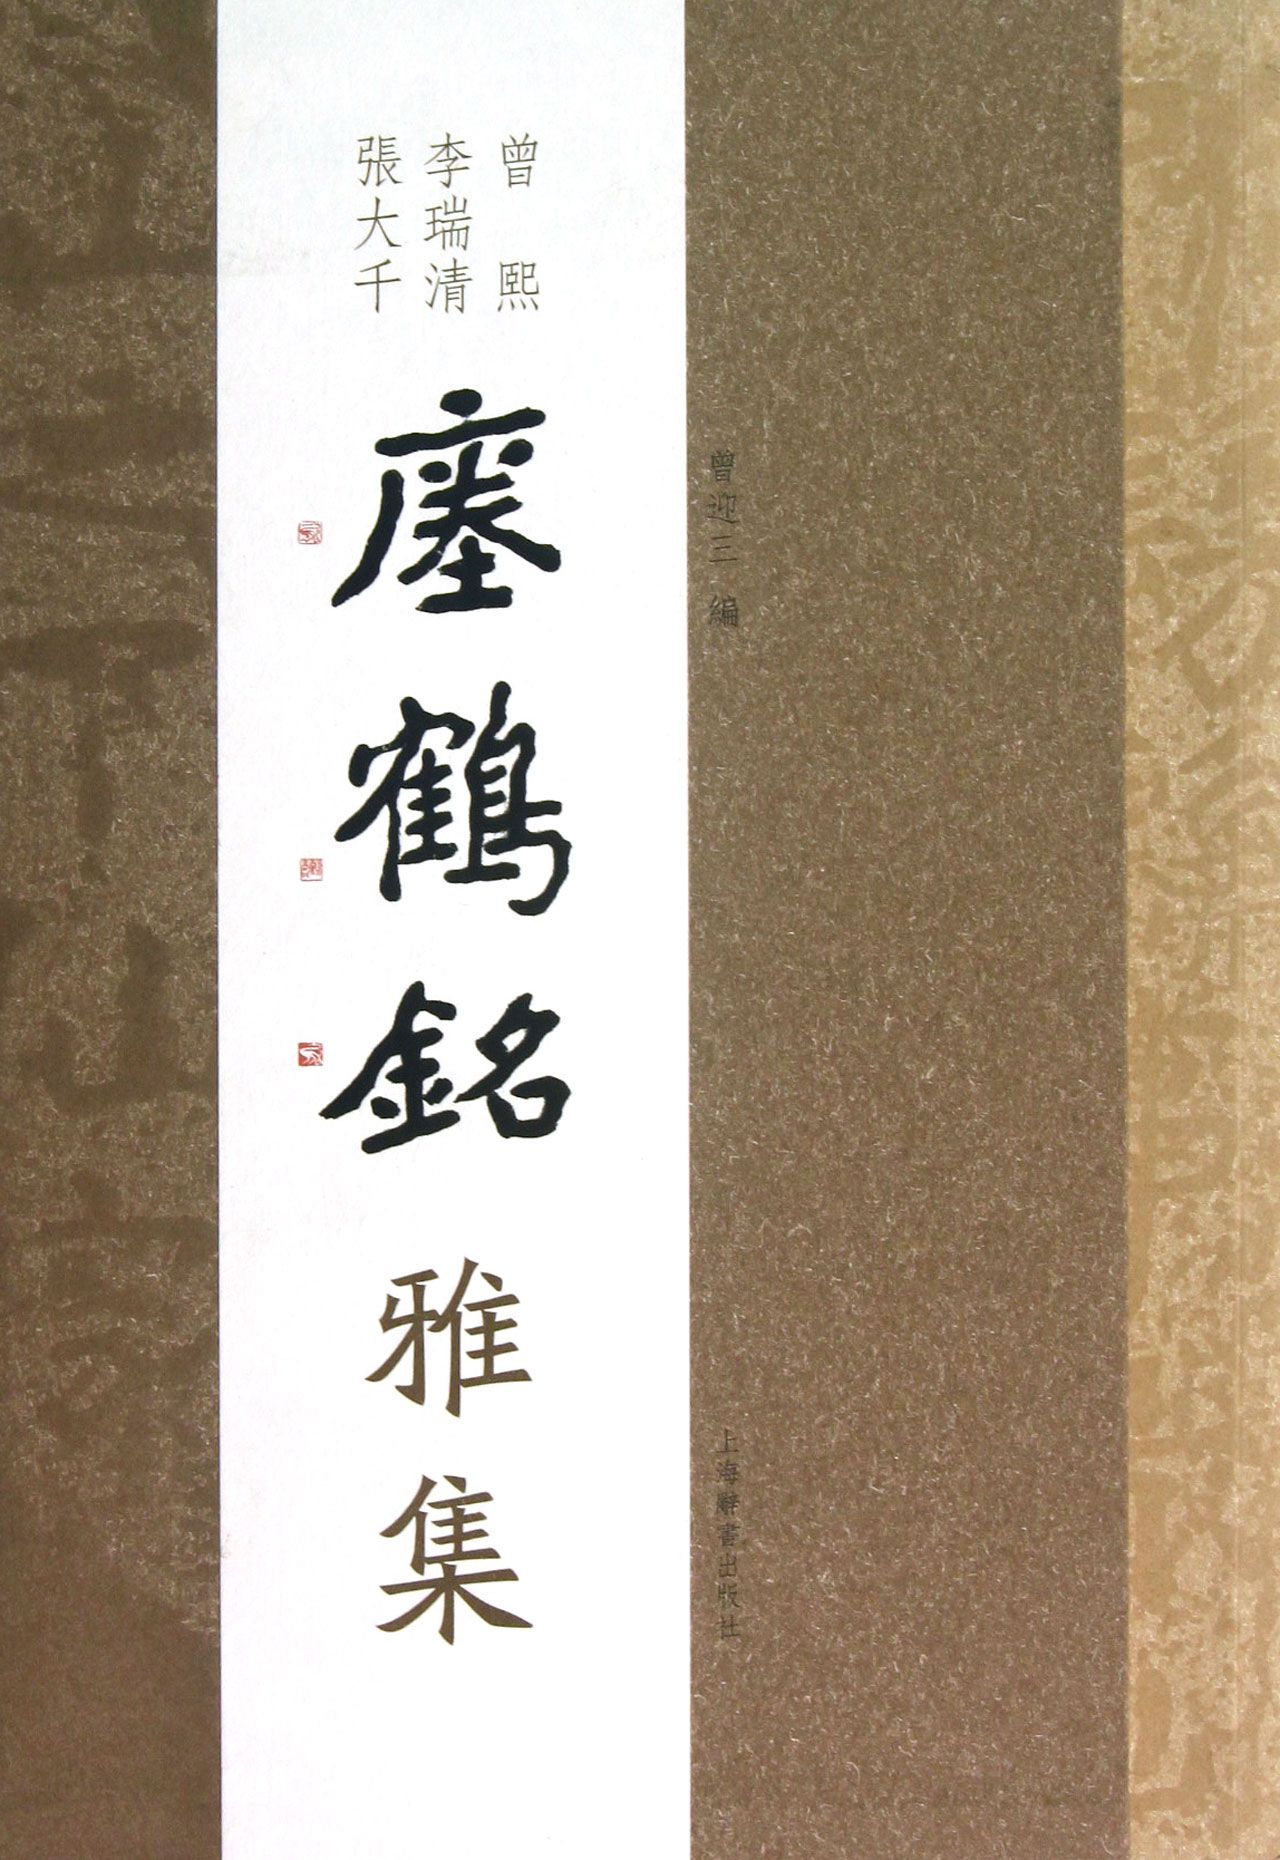 曾熙
李瑞清
張大千
瘞鶴銘
雅集
曾迎三 編
上海辭書出版社